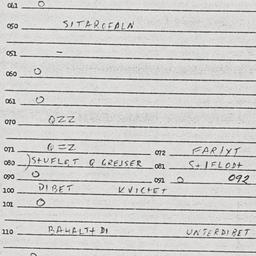 061 O
050 SITAROFALN
051 -
060 O
061 O
070 QZZ
071 Q=Z 072 FARIYT
080 )S+UFLE,T Q GREJSER 081 S+IFLOD+
090 O 091 O 092
100 DIBET KVICHET
101 O
110 BAHALT+ DI UNTERDIBET